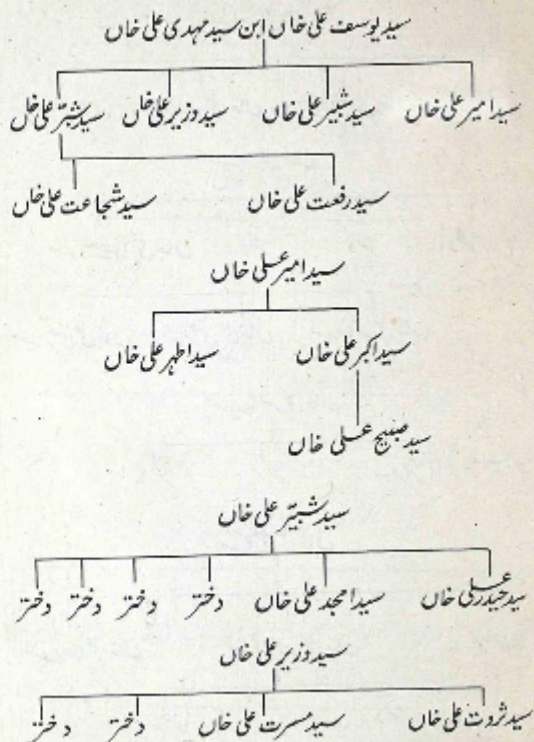 سید یوسف علی خاں ابن سید مہدی علی خاں
سید امیر علی خاں سید شبیر علی خاں سید وزیر علی خاں سید شبّر علی خاں
سید رفعت علی خاں سید شجاعت علی خاں
سید امیر علی خاں
سید اکبر علی خاں سید اطہر علی خاں
سید صبیح علی خاں
سید شبیر علی خاں
سید حیدر علی خاں سید امجد علی خاں دختر دختر دختر دختر
سید وزیر علی خاں
سید ثروت علی خاں سید مسرت علی خاں دختر دختر